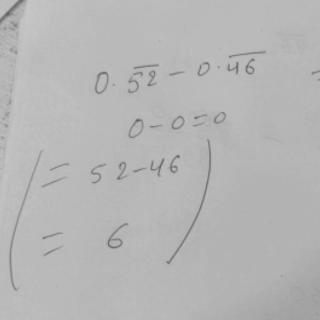 0.5̅2̅ - 0.4̅6̅ =
0-0=0
= 52-46
= 6